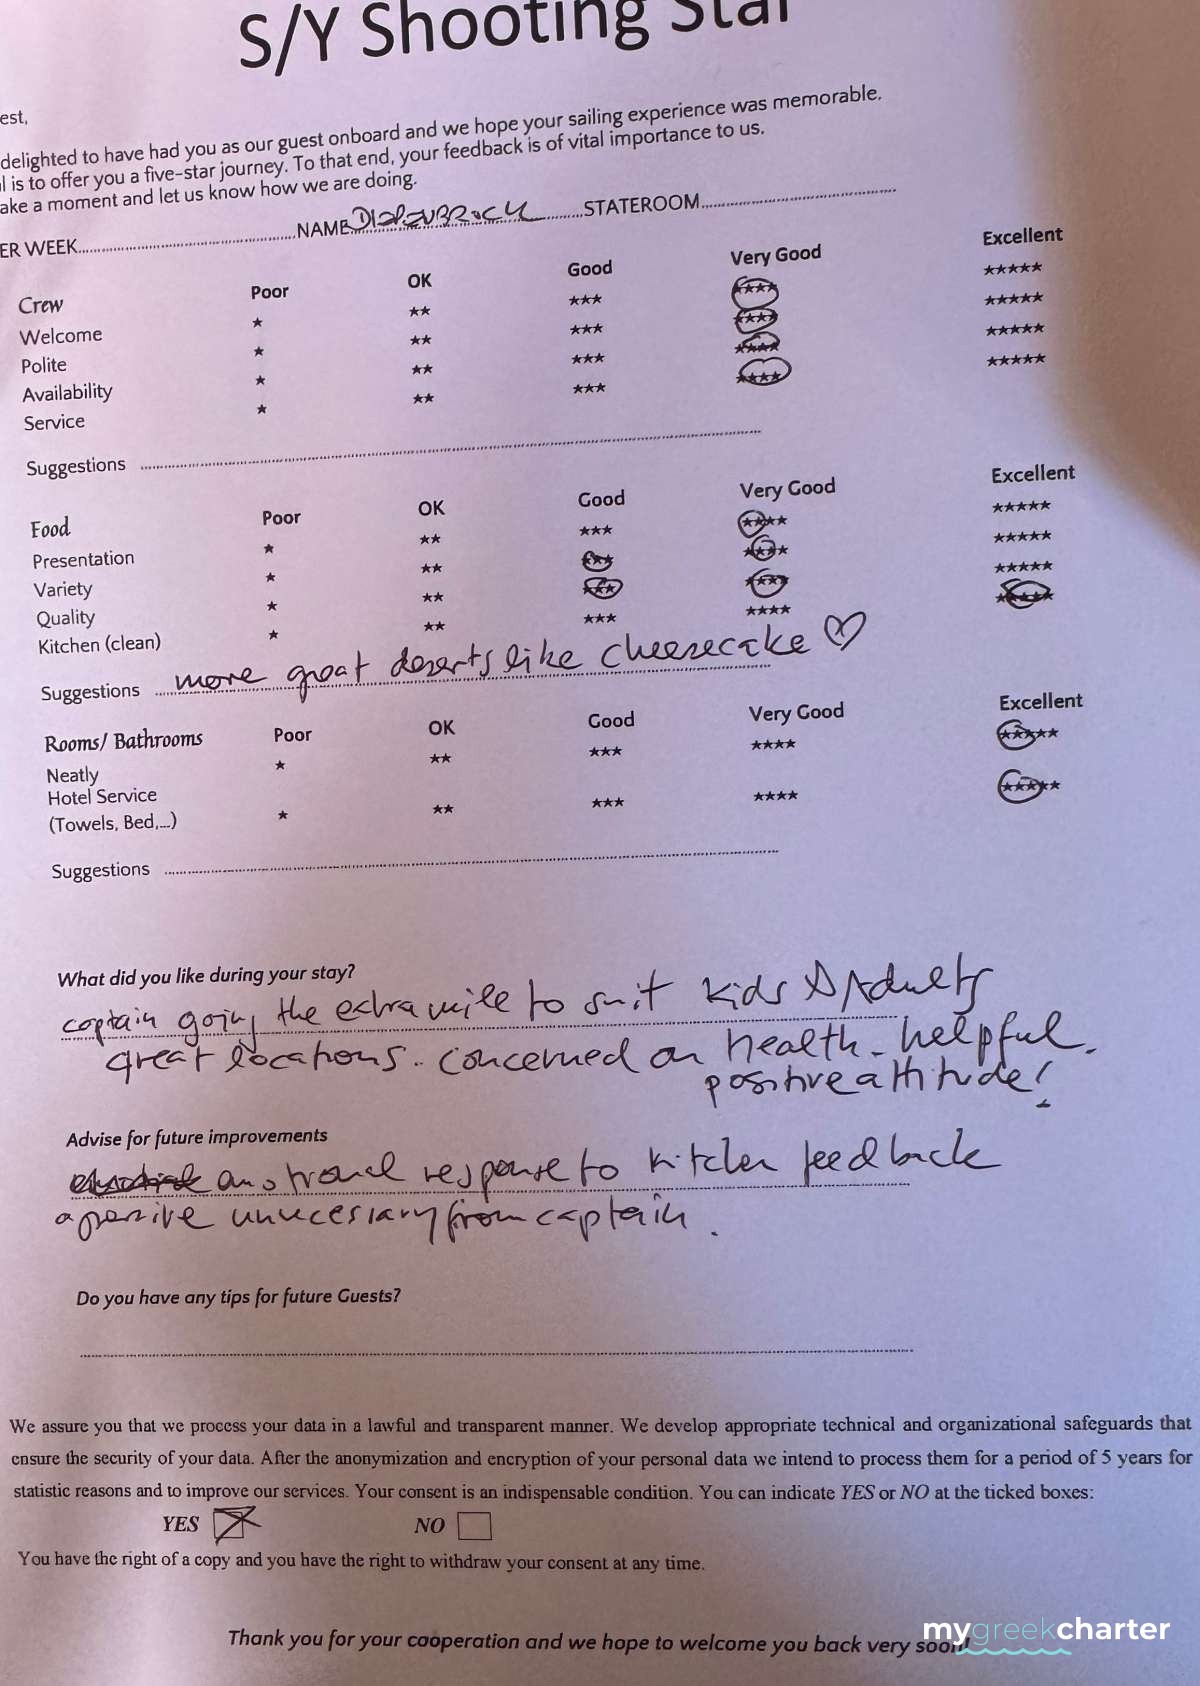 S/Y Shooting Star
est,
delighted to have had you as our guest onboard and we hope your sailing experience was memorable.
l is to offer you a five-star journey. To that end, your feedback is of vital importance to us.
ake a moment and let us know how we are doing.
ER WEEK NAME STATEROOM
Crew Poor OK Good Very Good Excellent
Welcome ★ ★★ ★★★ ★★★★ ★★★★★
Polite ★ ★★ ★★★ ★★★★ ★★★★★
Availability ★ ★★ ★★★ ★★★★ ★★★★★
Service ★ ★★ ★★★ ★★★★ ★★★★★
Suggestions
Food Poor OK Good Very Good Excellent
Presentation ★ ★★ ★★★ ★★★★ ★★★★★
Variety ★ ★★ ★★★ ★★★★ ★★★★★
Quality ★ ★★ ★★★ ★★★★ ★★★★★
Kitchen (clean) ★ ★★ ★★★ ★★★★ ★★★★★
Suggestions more great deserts like cheesecake ♡
Rooms/ Bathrooms Poor OK Good Very Good Excellent
Neatly ★ ★★ ★★★ ★★★★ ★★★★★
Hotel Service
(Towels, Bed,...) ★ ★★ ★★★ ★★★★ ★★★★★
Suggestions
What did you like during your stay?
captain going the extra mile to suit kids & Adults
great locations. concerned on health - helpful.
positive attitude!
Advise for future improvements
response to kitchen feedback
unnecessary from captain.
Do you have any tips for future Guests?
We assure you that we process your data in a lawful and transparent manner. We develop appropriate technical and organizational safeguards that
ensure the security of your data. After the anonymization and encryption of your personal data we intend to process them for a period of 5 years for
statistic reasons and to improve our services. Your consent is an indispensable condition. You can indicate YES or NO at the ticked boxes:
YES NO
You have the right of a copy and you have the right to withdraw your consent at any time.
Thank you for your cooperation and we hope to welcome you back very soon!
mygreekcharter